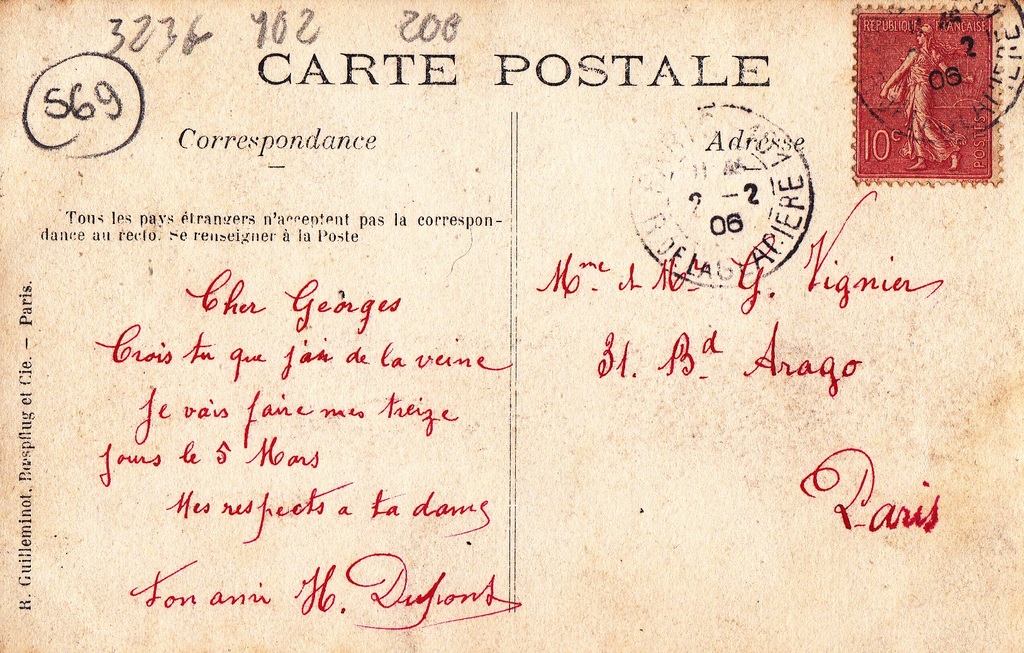 3236 902 200
569
CARTE POSTALE
RÉPUBLIQUE FRANÇAISE
10c
POSTES
2
06
Correspondance
Adresse
Tous les pays étrangers n'acceptent pas la correspon-
dance au recto. Se renseigner à la Poste
2 -2
06
R. DE LA GLACIERE
Cher Georges
Crois tu que j'ai de la veine
Je vais faire mes treize
jours le 5 Mars
Mes respects a ta dame
Ton ami H. Dupont
Mme et Mr G. Vignier
31. Bd Arago
Paris
R. Guilleminot, Bœspflug et Cie. — Paris.